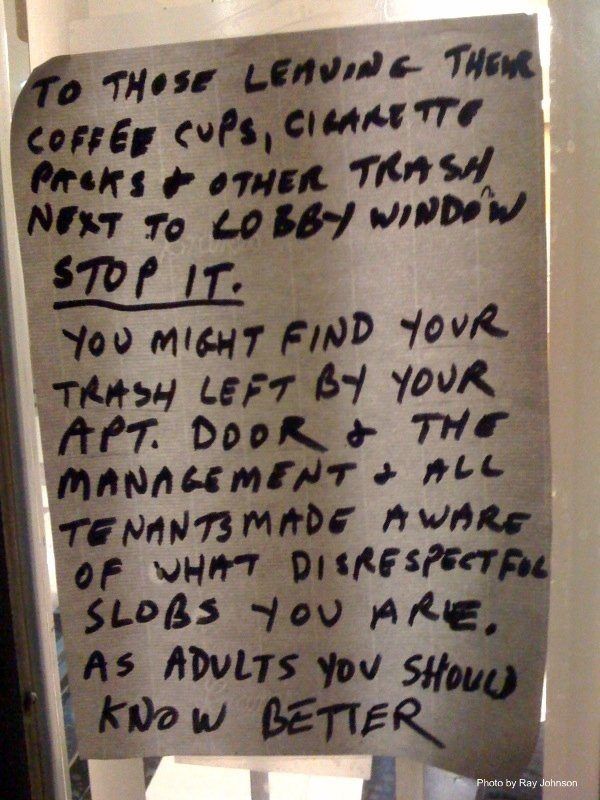 TO THOSE LEAVING THEIR
COFFEE CUPS, CIGARETTE
PACKS & OTHER TRASH
NEXT TO LOBBY WINDOW
STOP IT.
YOU MIGHT FIND YOUR
TRASH LEFT BY YOUR
APT. DOOR & THE
MANAGEMENT & ALL
TENANTS MADE AWARE
OF WHAT DISRESPECTFUL
SLOBS YOU ARE.
AS ADULTS YOU SHOULD
KNOW BETTER
Photo by Ray Johnson